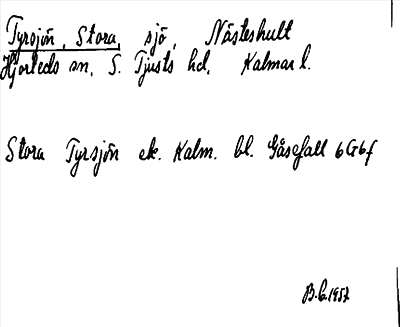 Tyrsjön, Stora, sjö, Näshult
Hjorteds sn, S. Tjusts hd, Kalmar l.
Stora Tyrsjön ek. Kalm. bl. Gåsefall 6G6f
B.G. 1957